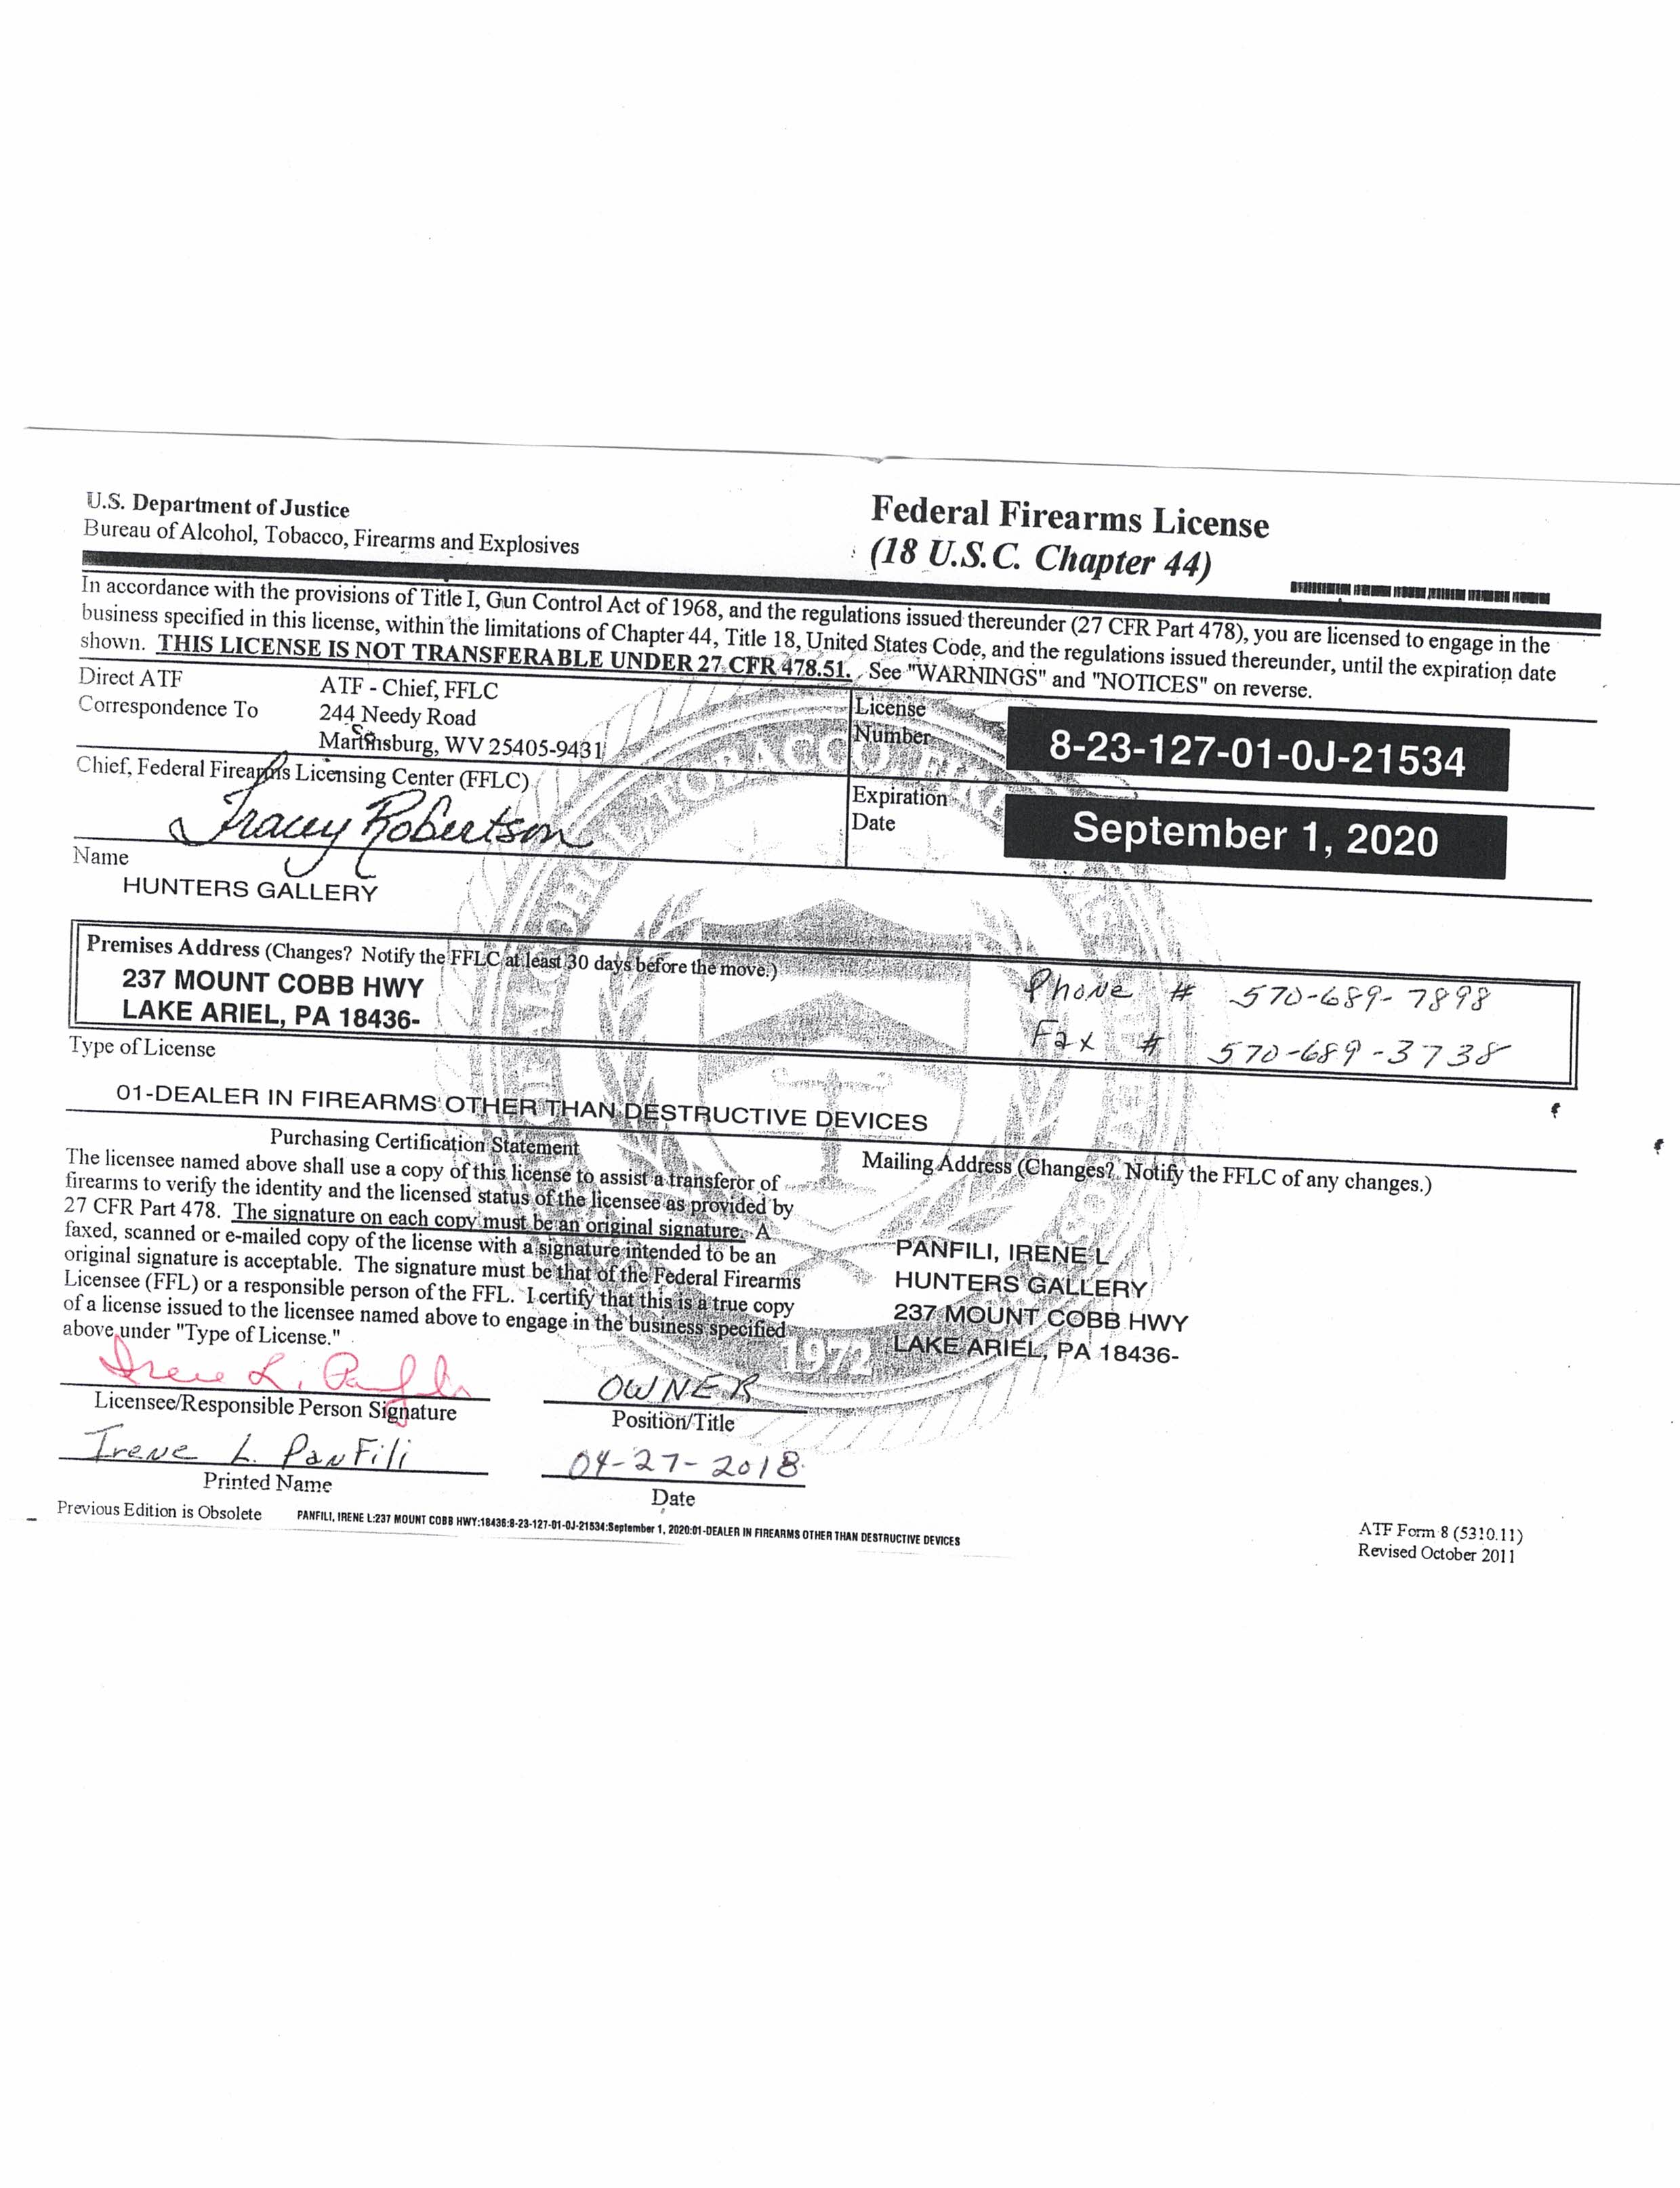 U.S. Department of Justice
Bureau of Alcohol, Tobacco, Firearms and Explosives
Federal Firearms License
(18 U.S.C. Chapter 44)
In accordance with the provisions of Title I, Gun Control Act of 1968, and the regulations issued thereunder (27 CFR Part 478), you are licensed to engage in the
business specified in this license, within the limitations of Chapter 44, Title 18, United States Code, and the regulations issued thereunder, until the expiration date
shown. THIS LICENSE IS NOT TRANSFERABLE UNDER 27 CFR 478.51. See "WARNINGS" and "NOTICES" on reverse.
Direct ATF
Correspondence To
ATF - Chief, FFLC
244 Needy Road
Martinsburg, WV 25405-9431
License
Number
8-23-127-01-0J-21534
Chief, Federal Firearms Licensing Center (FFLC)
Tracey Robertson
Expiration
Date
September 1, 2020
Name
HUNTERS GALLERY
Premises Address (Changes? Notify the FFLC at least 30 days before the move.)
237 MOUNT COBB HWY
LAKE ARIEL, PA 18436-
Phone # 570-689-7898
Fax # 570-689-3738
Type of License
01-DEALER IN FIREARMS OTHER THAN DESTRUCTIVE DEVICES
Purchasing Certification Statement
The licensee named above shall use a copy of this license to assist a transferor of
firearms to verify the identity and the licensed status of the licensee as provided by
27 CFR Part 478. The signature on each copy must be an original signature. A
faxed, scanned or e-mailed copy of the license with a signature intended to be an
original signature is acceptable. The signature must be that of the Federal Firearms
Licensee (FFL) or a responsible person of the FFL. I certify that this is a true copy
of a license issued to the licensee named above to engage in the business specified
above under "Type of License."
Mailing Address (Changes? Notify the FFLC of any changes.)
PANFILI, IRENE L
HUNTERS GALLERY
237 MOUNT COBB HWY
LAKE ARIEL, PA 18436-
1972
Irene L. Panfili
Licensee/Responsible Person Signature
OWNER
Position/Title
Irene L. PanFili
Printed Name
04-27-2018
Date
Previous Edition is Obsolete
PANFILI, IRENE L:237 MOUNT COBB HWY:18436:8-23-127-01-0J-21534:September 1, 2020:01-DEALER IN FIREARMS OTHER THAN DESTRUCTIVE DEVICES
ATF Form 8 (5310.11)
Revised October 2011